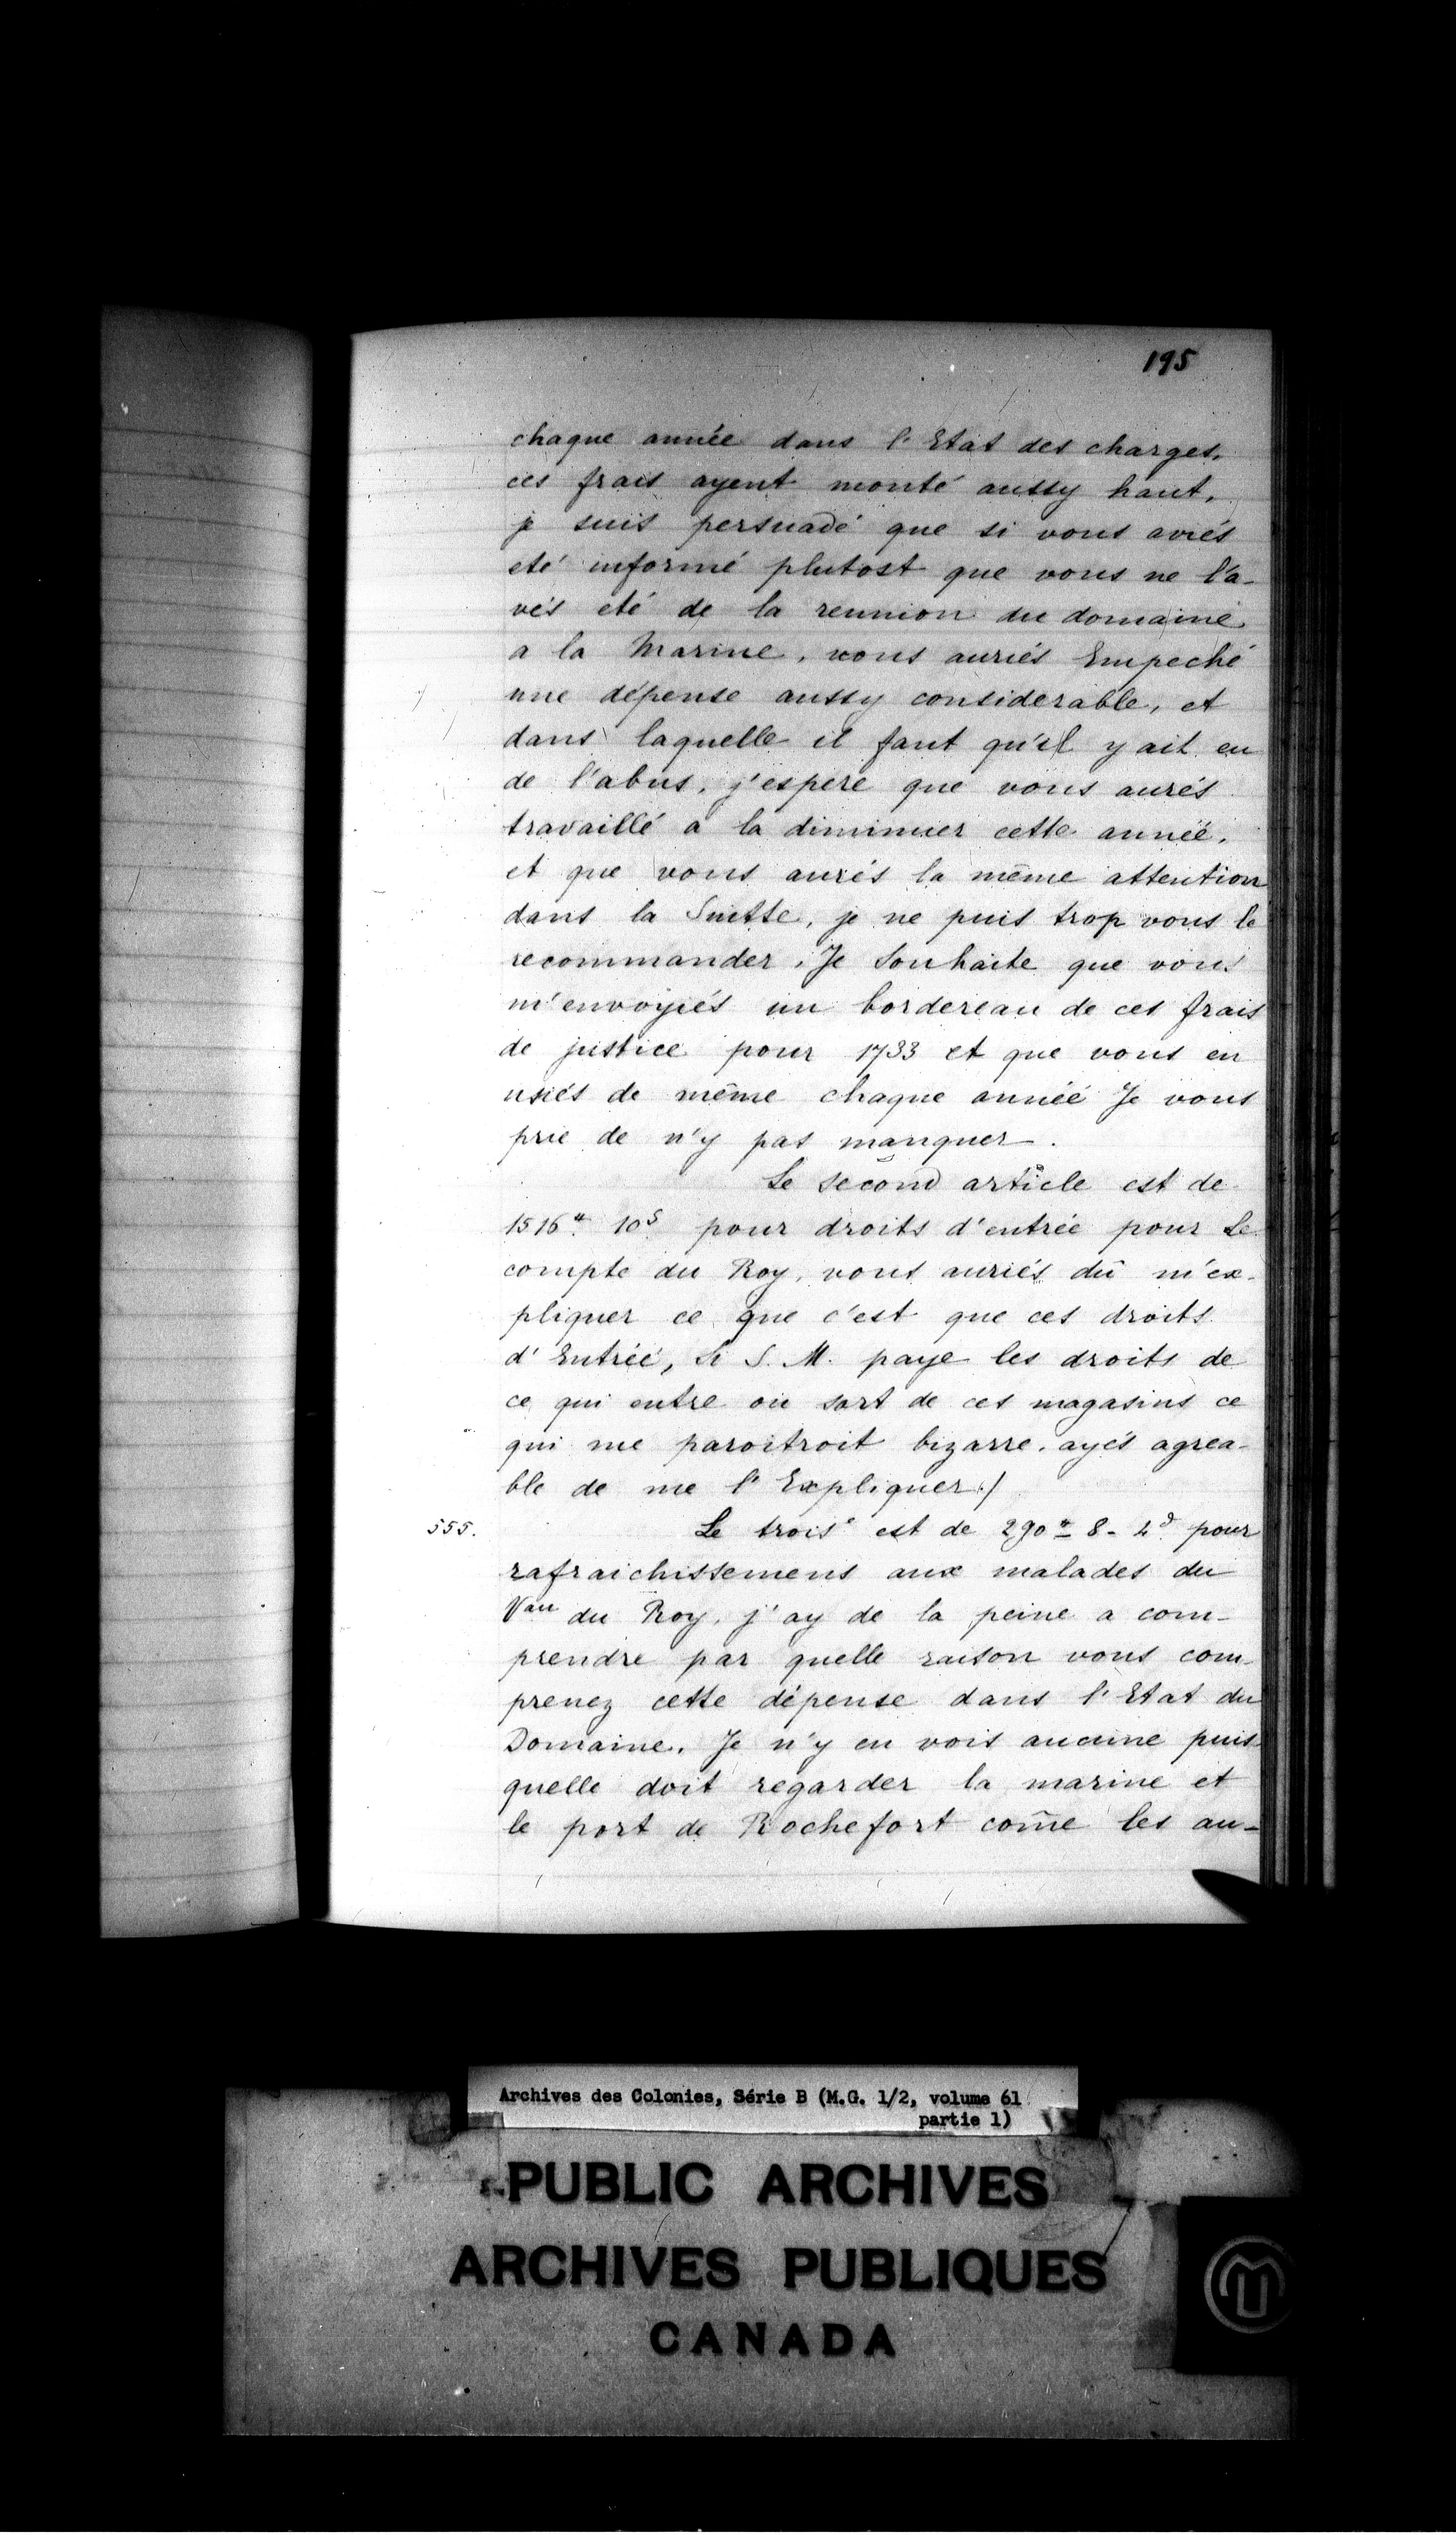 195
chaque année dans l'Etat des charges,
ces frais ayent monté aussy haut,
je suis persuadé que si vous aviés
eté informé plutost que vous ne l'a-
vés eté de la reunion du domaine
a la Marine, vous auriés Empeché
une dépense aussy considerable, et
dans laquelle il faut qu'il y ait eu
de l'abus, j'espere que vous aurés
travaillé a la diminuer cette année,
et que vous aurés la même attention
dans la Suitte, je ne puis trop vous le
recommander, Je Souhaite que vous
m'envoyiés un bordereau de ces frais
de justice pour 1733 et que vous en
usiés de même chaque année Je vous
prie de n'y pas manquer.
Le second article est de
1516# 10s pour droits d'entrée pour Le
compte du Roy, vous auriés dû m'ex-
pliquer ce que c'est que ces droits
d'Entrée, Si S. M. paye les droits de
ce qui entre ou sort de ces magasins ce
qui me paroitroit bizarre, ayés agrea-
ble de me l'Expliquer./
555. Le trois.e est de 290# 8- 4d pour
rafraichissemens aux malades du
Vau du Roy, j'ay de la peine a com-
prendre par quelle raison vous com-
prenez cette dépense dans l'Etat du
Domaine. Je n'y en vois aucune puis
quelle doit regarder la marine et
le port de Rochefort com̃e les au-
Archives des Colonies, Série B (M.G. 1/2, volume 61
partie 1)
PUBLIC ARCHIVES
ARCHIVES PUBLIQUES
CANADA